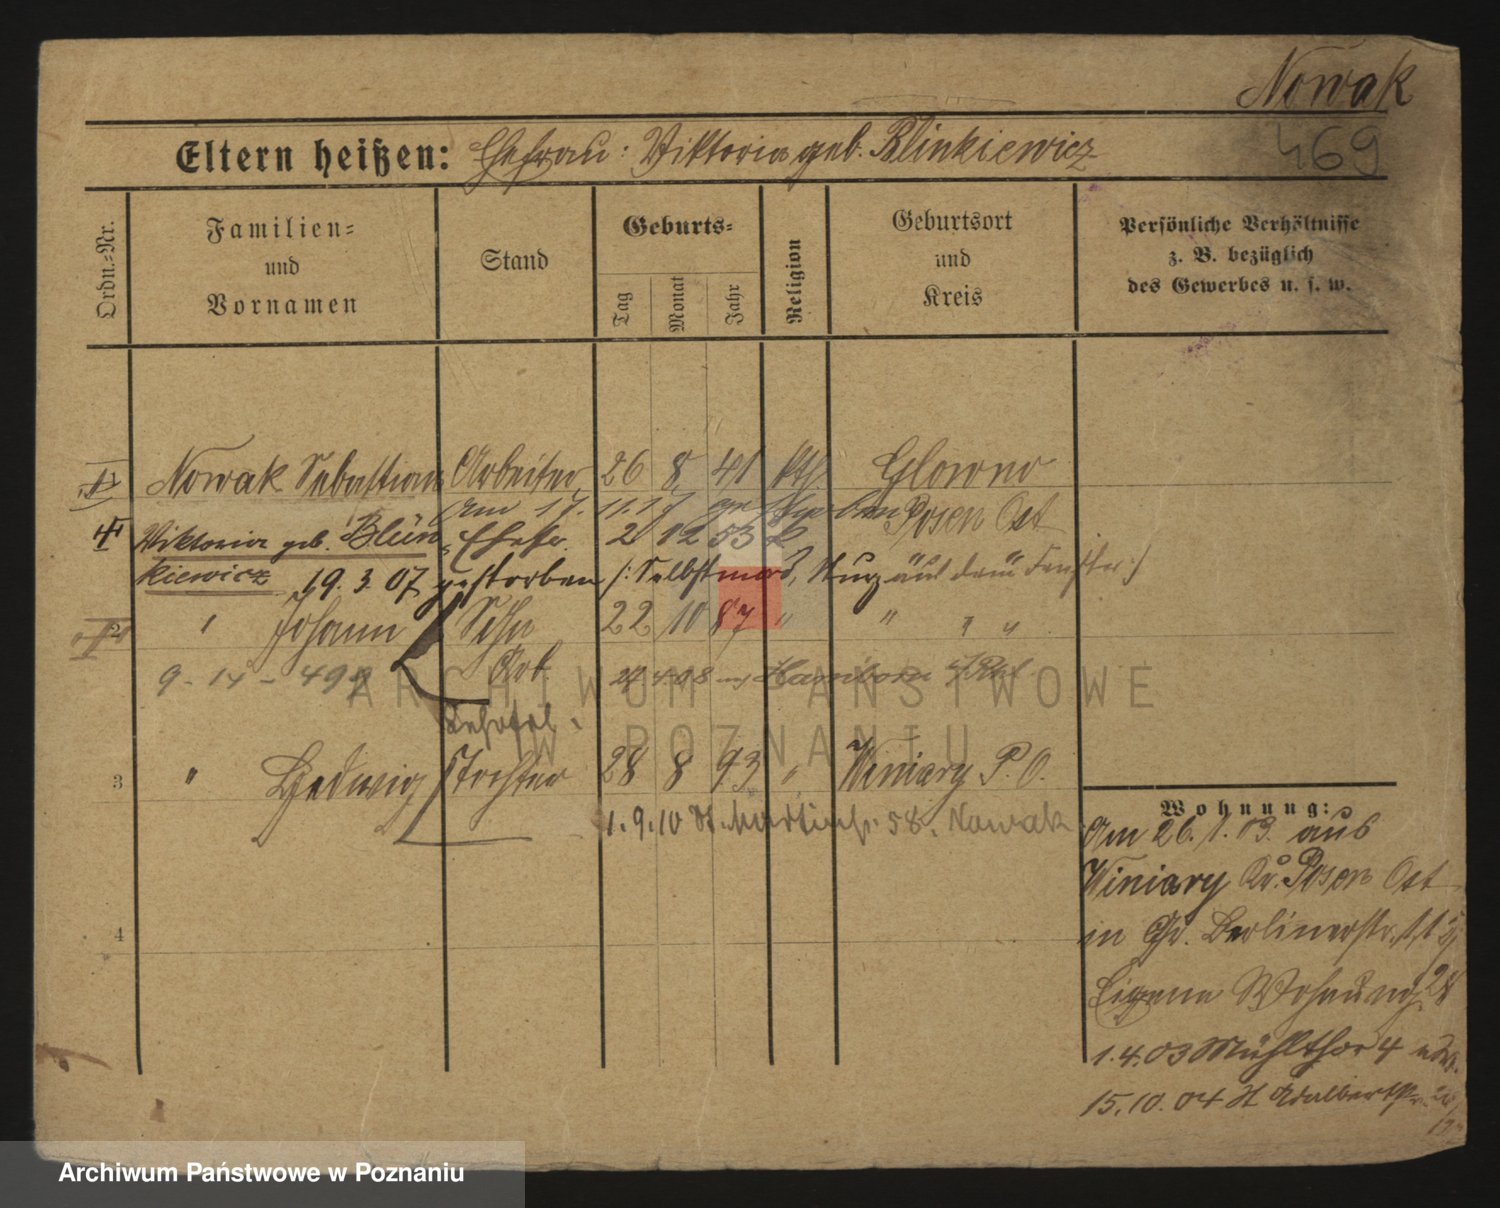 Nowak
469
Eltern heißen: Ehefrau: Viktoria geb. Blinkiewicz
Ordn.-Nr.
Familien- und Vornamen
Stand
Geburts-
Tag
Monat
Jahr
Religion
Geburtsort und Kreis
Persönliche Verhältnisse z. B. bezüglich des Gewerbes u. s. w.
Nowak Sebastian Arbeiter 26 8 41 kth Glowno
Am 17. 11. 17 gestorben Posen Ost
Viktoria geb. Blün- Ehefr. 2 12 53 k
kiewicz 19. 3. 07 gestorben (: Selbstmord, Sturz aus dem Fenster :)
2 " Johann Sohn 22 10 87 " " " "
9 - 14 - 498 Arb. 27 4 08 Hamborn
ARCHIWUM PAŃSTWOWE
W POZNANIU
3 " Hedwig Tochter 28 8 93 " Winiary P. O.
1. 9. 10 St. Martinstr. 58. Nowak
4
Wohnung:
Am 26. 1. 03. aus
Winiary Kr. Posen Ost
in Gr. Berlinerstr.
Eigene Wohnung 28
1. 4. 03 Mühlthor 4
15. 10. 04 St Adalbertstr.
Archiwum Państwowe w Poznaniu